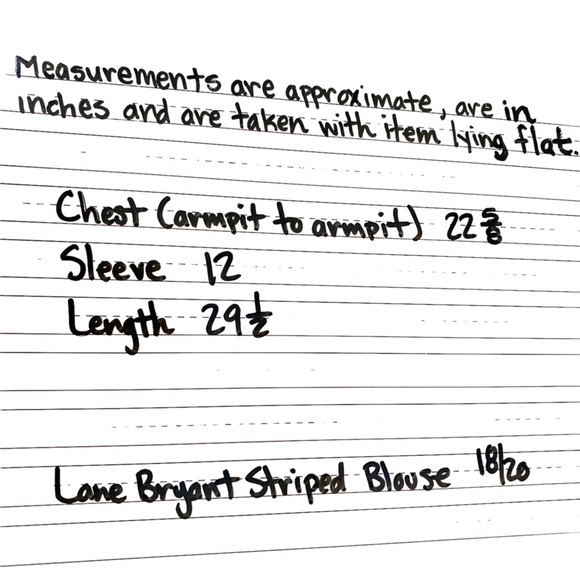 Measurements are approximate, are in
inches and are taken with item lying flat.
Chest (armpit to armpit) 22 5/8
Sleeve 12
Length 29 1/2
Lane Bryant Striped Blouse 18/20